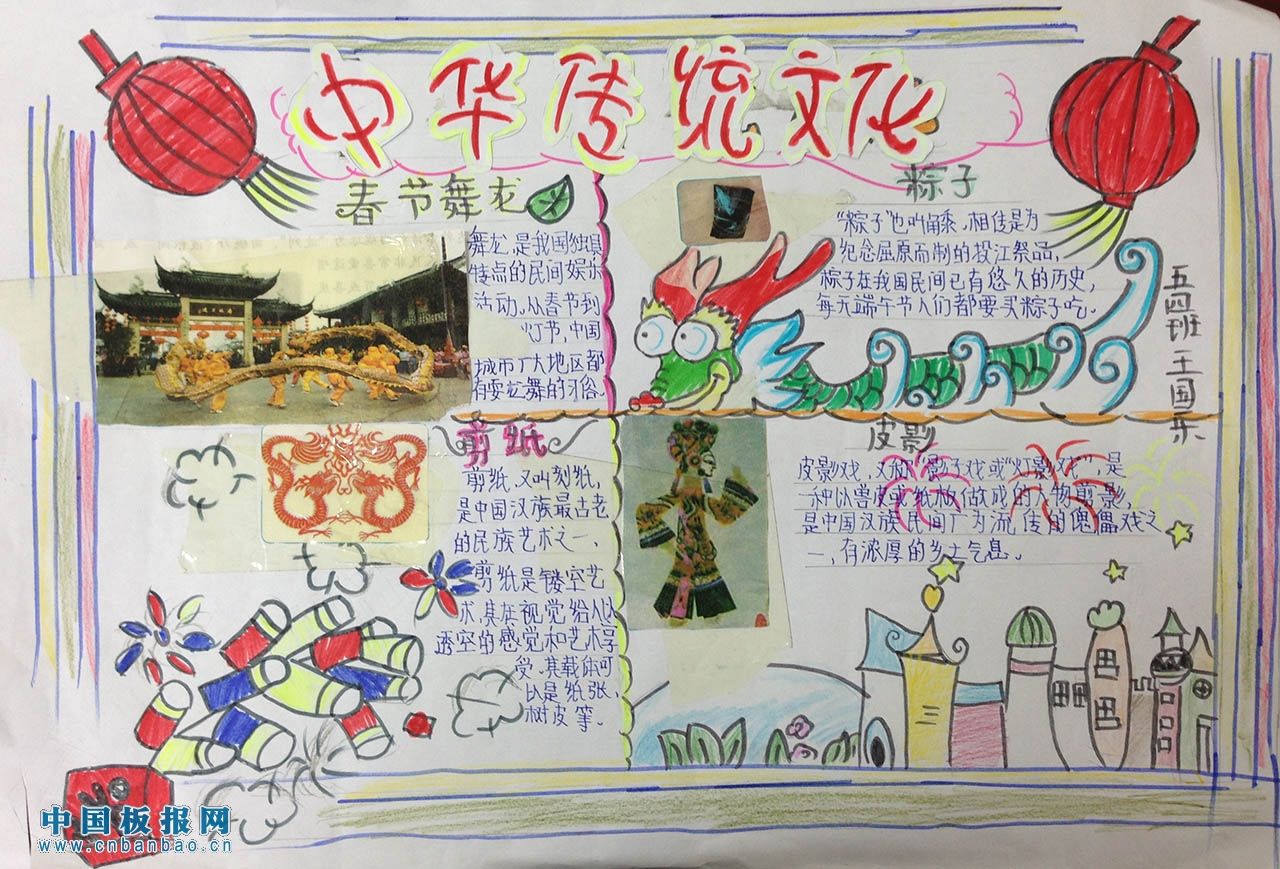 中华传统文化
春节舞龙
舞龙,是我国独具
特点的民间娱乐
活动。从春节到
灯节,中国
城市广大地区都
有耍龙舞的习俗。
粽子
“粽子”也叫角黍,相传是为
纪念屈原而制的投江祭品,
粽子在我国民间已有悠久的历史,
每元端午节人们都要买粽子吃。
五四班 王国乐
剪纸
剪纸,又叫刻纸,
是中国汉族最古老
的民族艺术之一、
剪纸是镂空艺
术,其在视觉给人以
透空的感觉和艺术享
受。其载体可
以是纸张,
树皮等。
皮影
皮影戏,又称“影子戏或“灯影戏”,是
一种以兽皮或纸板做成的人物剪影,
是中国汉族民间广为流传的傀儡戏之
一,有浓厚的乡土气息。
中国板报网
www.cnbanbao.cn